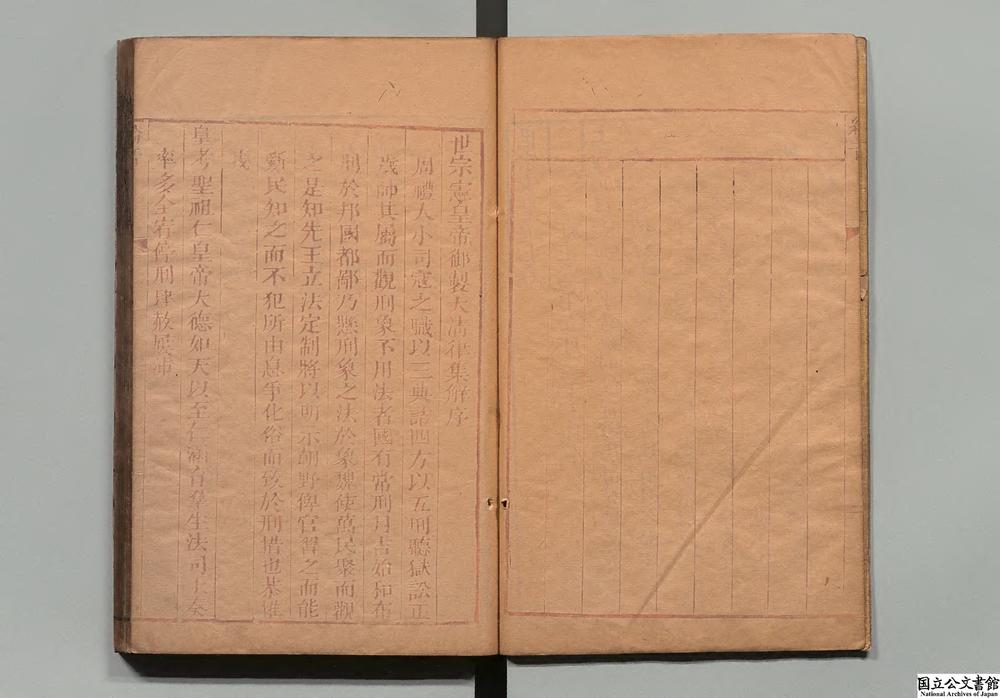 世宗憲皇帝御製大清律集解序
周禮大小司寇之職以三典詰四方以五刑聽獄訟正
歲帥其屬而觀刑象不用法者國有常刑月吉始和布
刑於邦國都鄙乃懸刑象之法於象魏使萬民聚而觀
之是知先王立法定制將以明示朝野俾官習之而能
斷民知之而不犯所由息爭化俗而致於刑措也恭惟
我
皇考聖祖仁皇帝大德如天以至仁涵育羣生法司上奏
率多全宥停刑肆赦屢沛
国立公文書館
National Archives of Japan